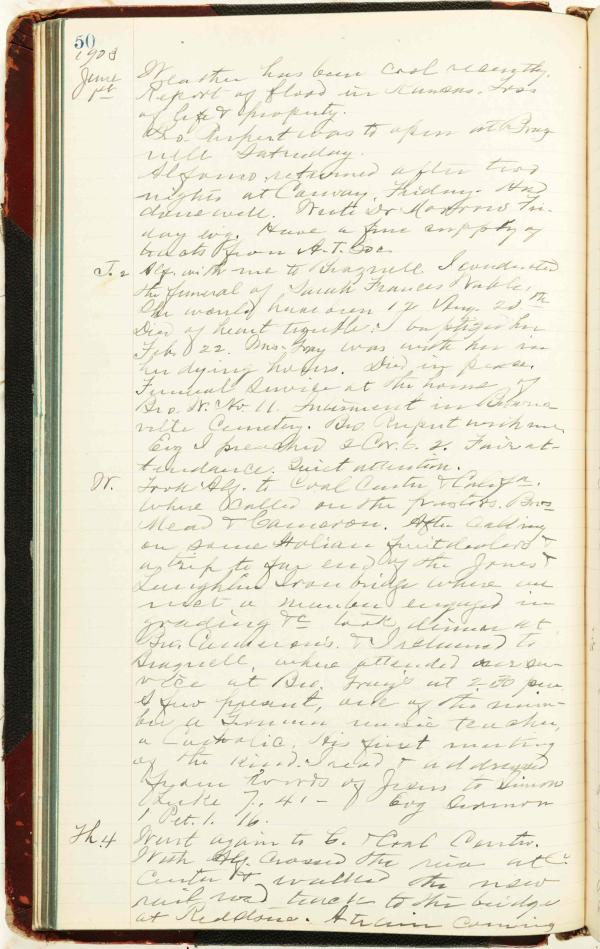 50
1903
June 1st Weather has been cool recently.
Report of flood in Kansas. Loss
of life & property.
Bro. Rupert was to open at Brag
nell Saturday.
Alfonso returned after two
nights at Friday. Had
done well. Write Dr Morrow Fri-
day evg. Have a fine supply of
tracts from A.T. Soc.
T. 2 Alf. with me to Bragnell I conducted
the funeral of Sarah Frances
She would have been 12 Aug. 28th
Died of heart trouble. I baptized her
Feb. 22. Mrs. Fray was with her in
her dying hours. Died in peace.
Funeral service at the home of
Bro. W. No. 11. Interment in Browns
ville Cemetery. Bro Rupert with me
Evg I preached 2 Cor. 6. 2. Fair at-
tendance. Quiet attention.
W. Took Alf. to Coal Center &
where called on the pastors. Bros
Mead & Cameron. After calling
on some Italian fruit dealers &
a trip to far end of the Jones &
Laughlin Iron bridge where we
met a number engaged in
grading &c took dinner at
Bro. Cameron's. & I returned to
Bragnell, where attended our ser-
vice at Bro. Fray's at 2.30 p.m.
A few present, one of the num-
ber a music teacher,
a Catholic. His first meeting
of the kind. I read & addressed
from words of Jesus to Simon
Luke 7. 41 - Evg Sermon
1 Pet. 1. 16.
Th. 4 Went again to C. & Coal Centre.
With Alf. crossed the river at C.
Center & walked the new
rail road track to the bridge
at Redstone. A train coming